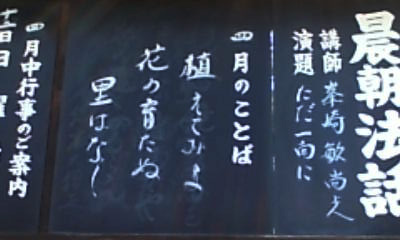 晨朝法話
講師 峯崎敏尚
演題 ただ一向に
四月のことば
植えてみよ
花の育たぬ
里はなし
四月中行事のご案内
日 曜